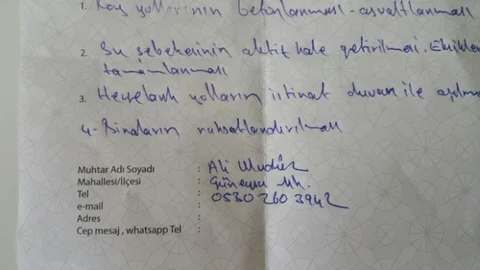 1. Köy yollarının betonlanması - asvaltlanması
2. Su şebekesinin aktif hale getirilmesi. Eksikler
tamamlanması
3. Heyelanlı yolların istinat duvarı ile
4- Binaların ruhsatlandırılması
Muhtar Adı Soyadı : Ali
Mahallesi/İlçesi : Güneysu Mh.
Tel : 0530 260 3942
e-mail :
Adres :
Cep mesaj , whatsapp Tel :